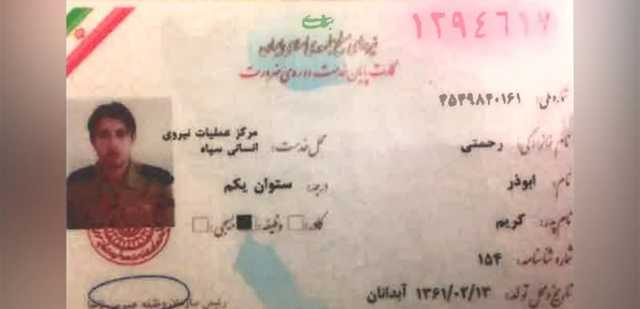 ۱۲۹۴۶۱۷
نیروهای مسلح جمهوری اسلامی ایران
کارت پایان خدمت دوره‌ی ضرورت
شماره ملی: ۴۵۴۹۸۴۰۱۶۱
نام خانوادگی: رحمتی
محل خدمت: مرکز عملیات نیروی انسانی سپاه
نام: ابوذر
درجه: ستوان یکم
نام پدر: کریم
کادر: وظیفه: بسیجی:
شماره شناسنامه: ۱۵۴
تاریخ و محل تولد: ۱۳۶۱/۰۲/۱۳ آبدانان
رئیس سازمان وظیفه عمومی ناجا